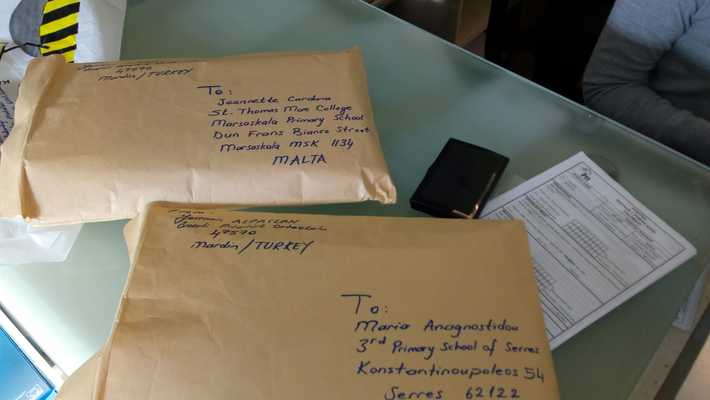 47570
Mardin/TURKEY
To:
Jeannette Cardona
St. Thomas More College
Marsaskala Primary School
Dun Frans Bianco Street
Marsaskala MSK 1134
MALTA
ALPASLAN
47570
Mardin/TURKEY
To:
Maria Anagnostidou
3rd Primary School of Serres
Konstantinoupoleos 54
Serres 62122